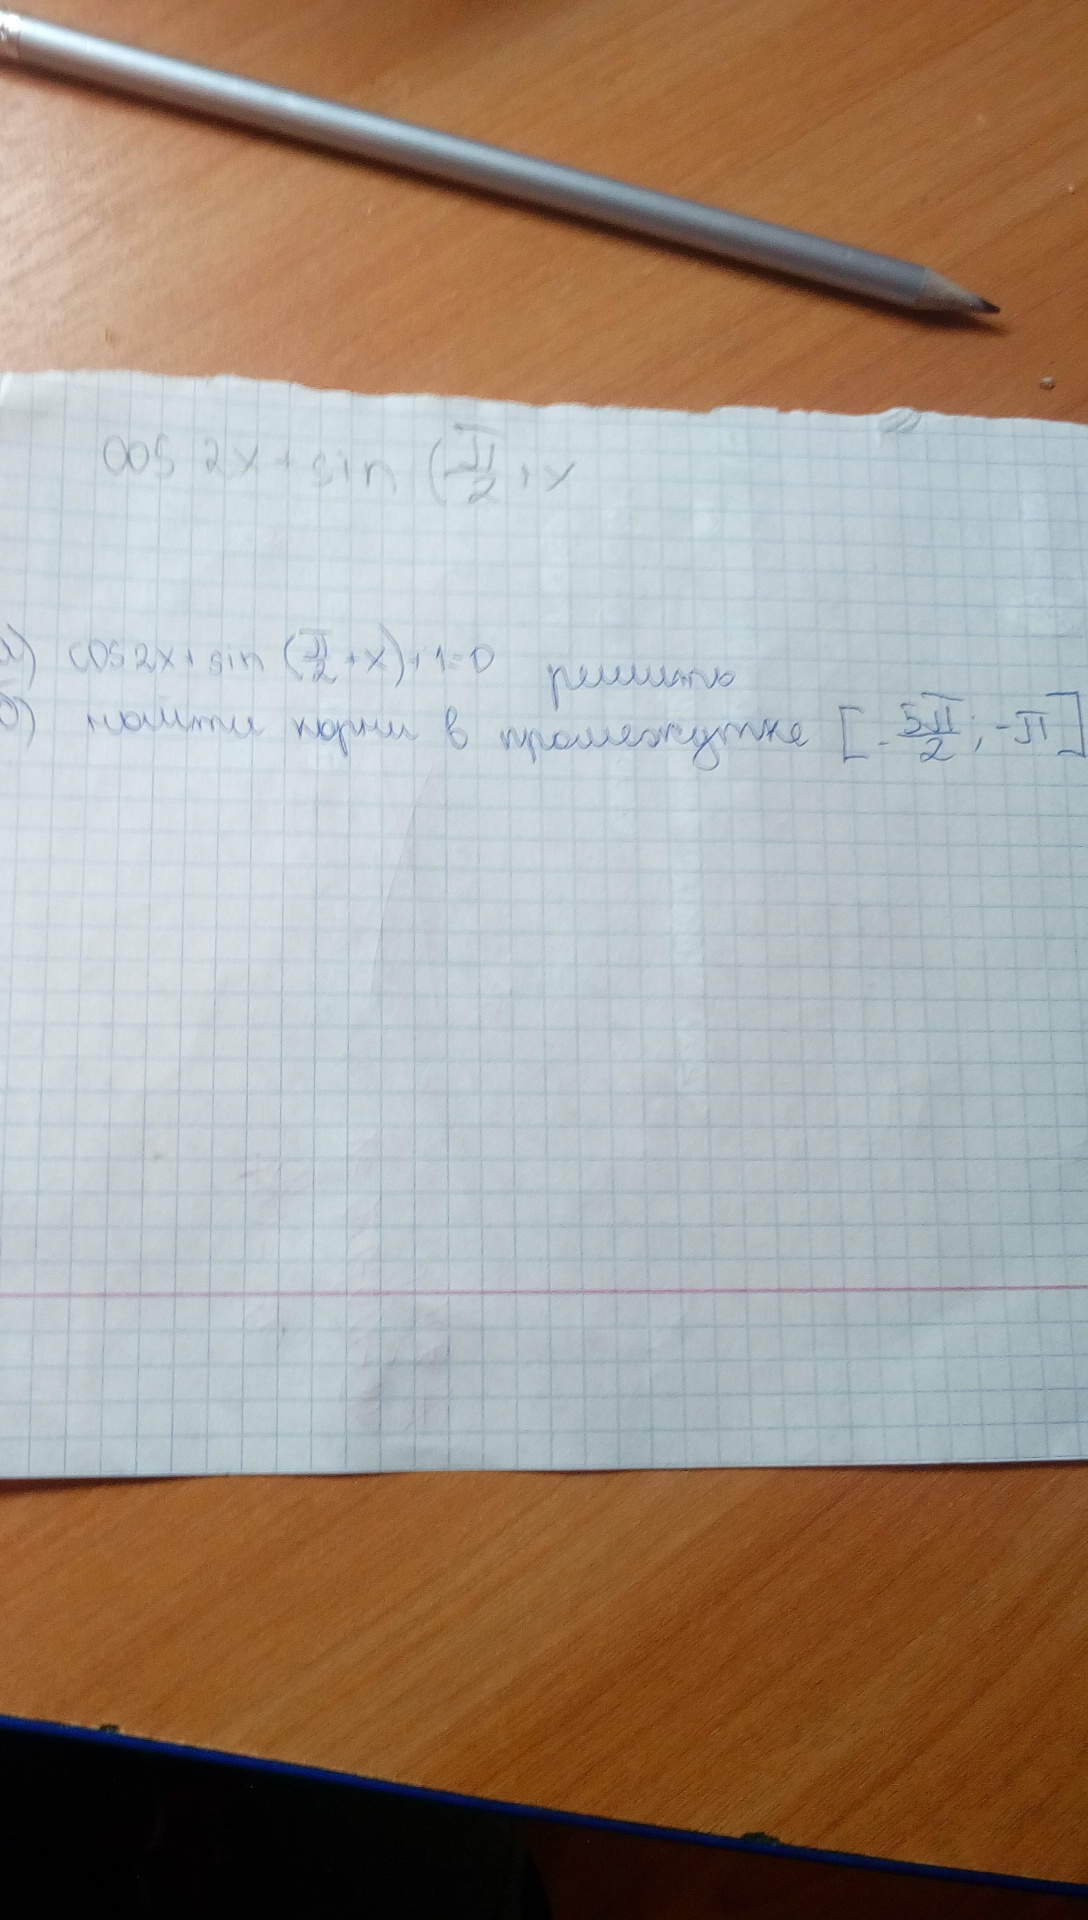 cos 2x + sin (π/2 + x
а) cos2x + sin (π/2 + x) + 1 = 0 решить
б) найти корни в промежутке [-5π/2; -π]